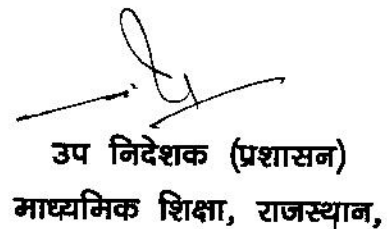 उप निदेशक (प्रशासन)
माध्यमिक शिक्षा, राजस्थान,